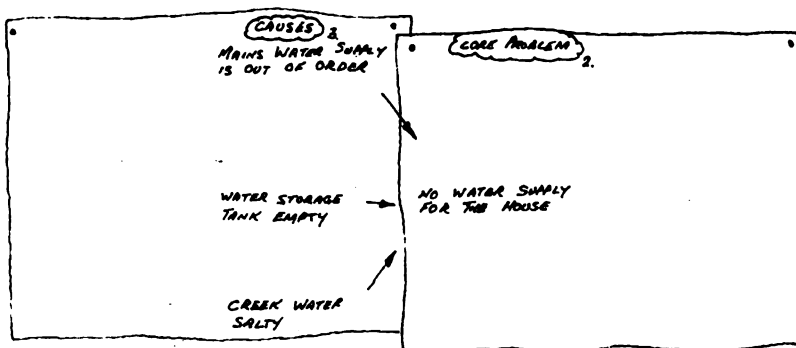 CAUSES 3.
MAINS WATER SUPPLY
IS OUT OF ORDER
WATER STORAGE
TANK EMPTY
CREEK WATER
SALTY
CORE PROBLEM 2.
NO WATER SUPPLY
FOR THE HOUSE